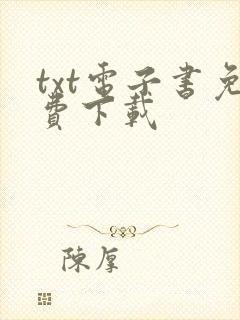 txt電子書免
費下載
陳厚